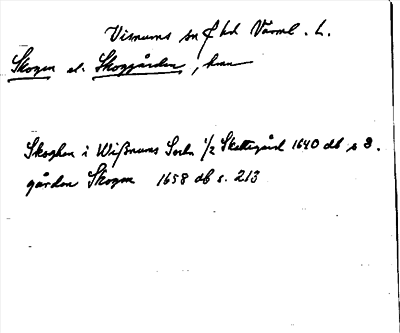 Visnums sn Värml. L.
Skogen el. Skoggården, hmn
Skoghen i Wißnums Sochn 1/2 Skattegård 1640 db s 3.
gården Skogen 1658 db s. 213